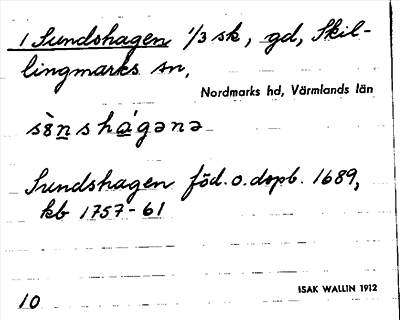 1 Sundshagen 1/3 sk, gd, Skil-
lingmarks sn,
Nordmarks hd, Värmlands län
sànshágənə
Sundshagen föd. o. dopb. 1689,
kb 1757-61
ISAK WALLIN 1912
10